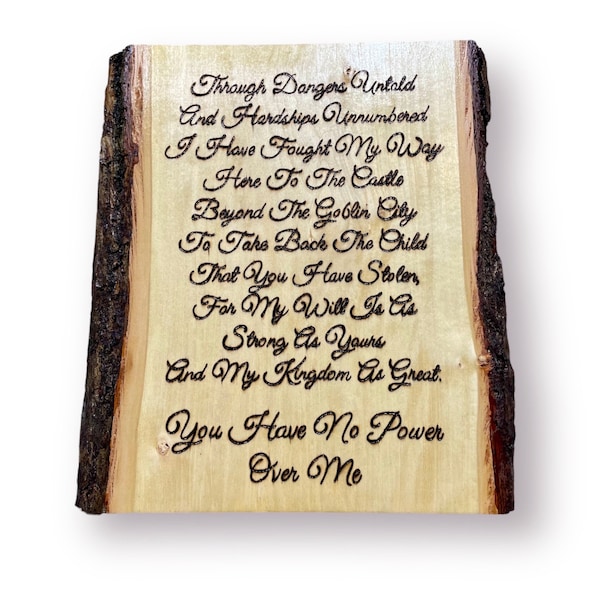 Through Dangers Untold
And Hardships Unnumbered
I Have Fought My Way
Here To The Castle
Beyond The Goblin City
To Take Back The Child
That You Have Stolen,
For My Will Is As
Strong As Yours
And My Kingdom As Great.
You Have No Power
Over Me